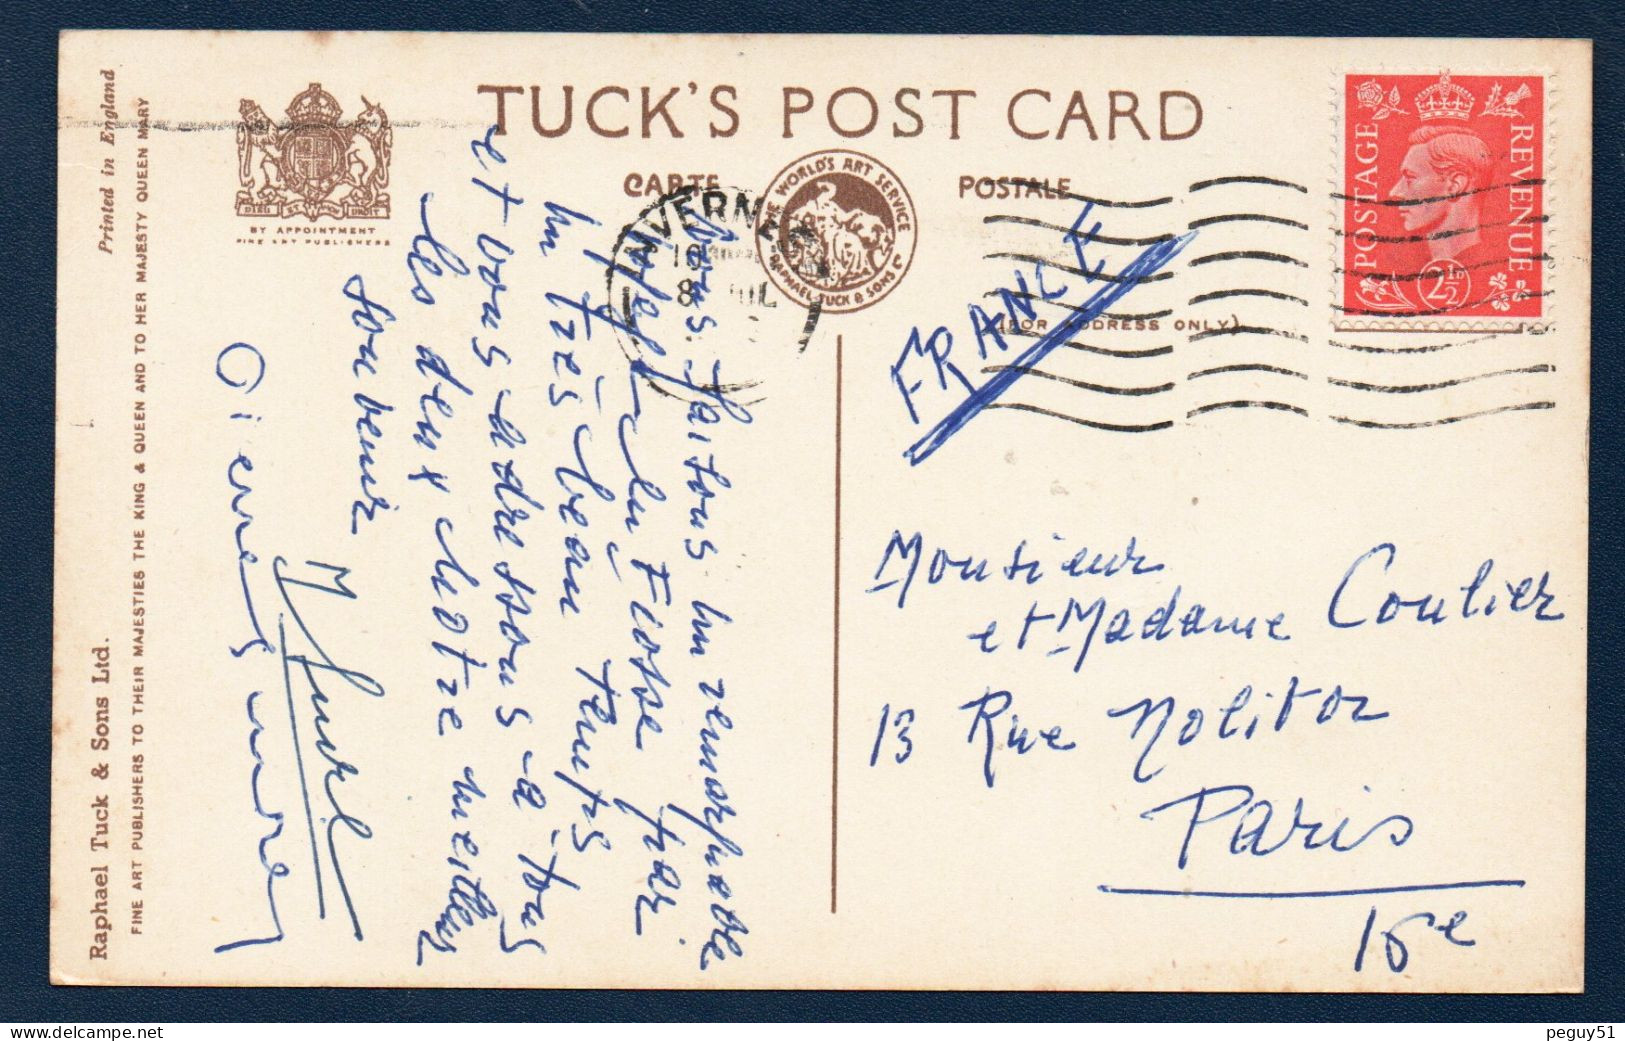 TUCK'S POST CARD
CARTE POSTALE
THE WORLD'S ART SERVICE
RAPHAEL TUCK & SONS LTD
DIEU ET MON DROIT
BY APPOINTMENT
FINE ART PUBLISHERS
Printed in England
Raphael Tuck & Sons Ltd.
FINE ART PUBLISHERS TO THEIR MAJESTIES THE KING & QUEEN AND TO HER MAJESTY QUEEN MARY
(FOR ADDRESS ONLY)
POSTAGE
REVENUE
2½D
INVERN
8 JUL
FRANCE
Nous faisons un remarquable
par
un très beau temps
et vous adressons à tous
les deux notre meilleur
souvenir
Monsieur
et Madame Coulier
13 Rue Molitor
Paris
16e
peguy51
delcampe.net